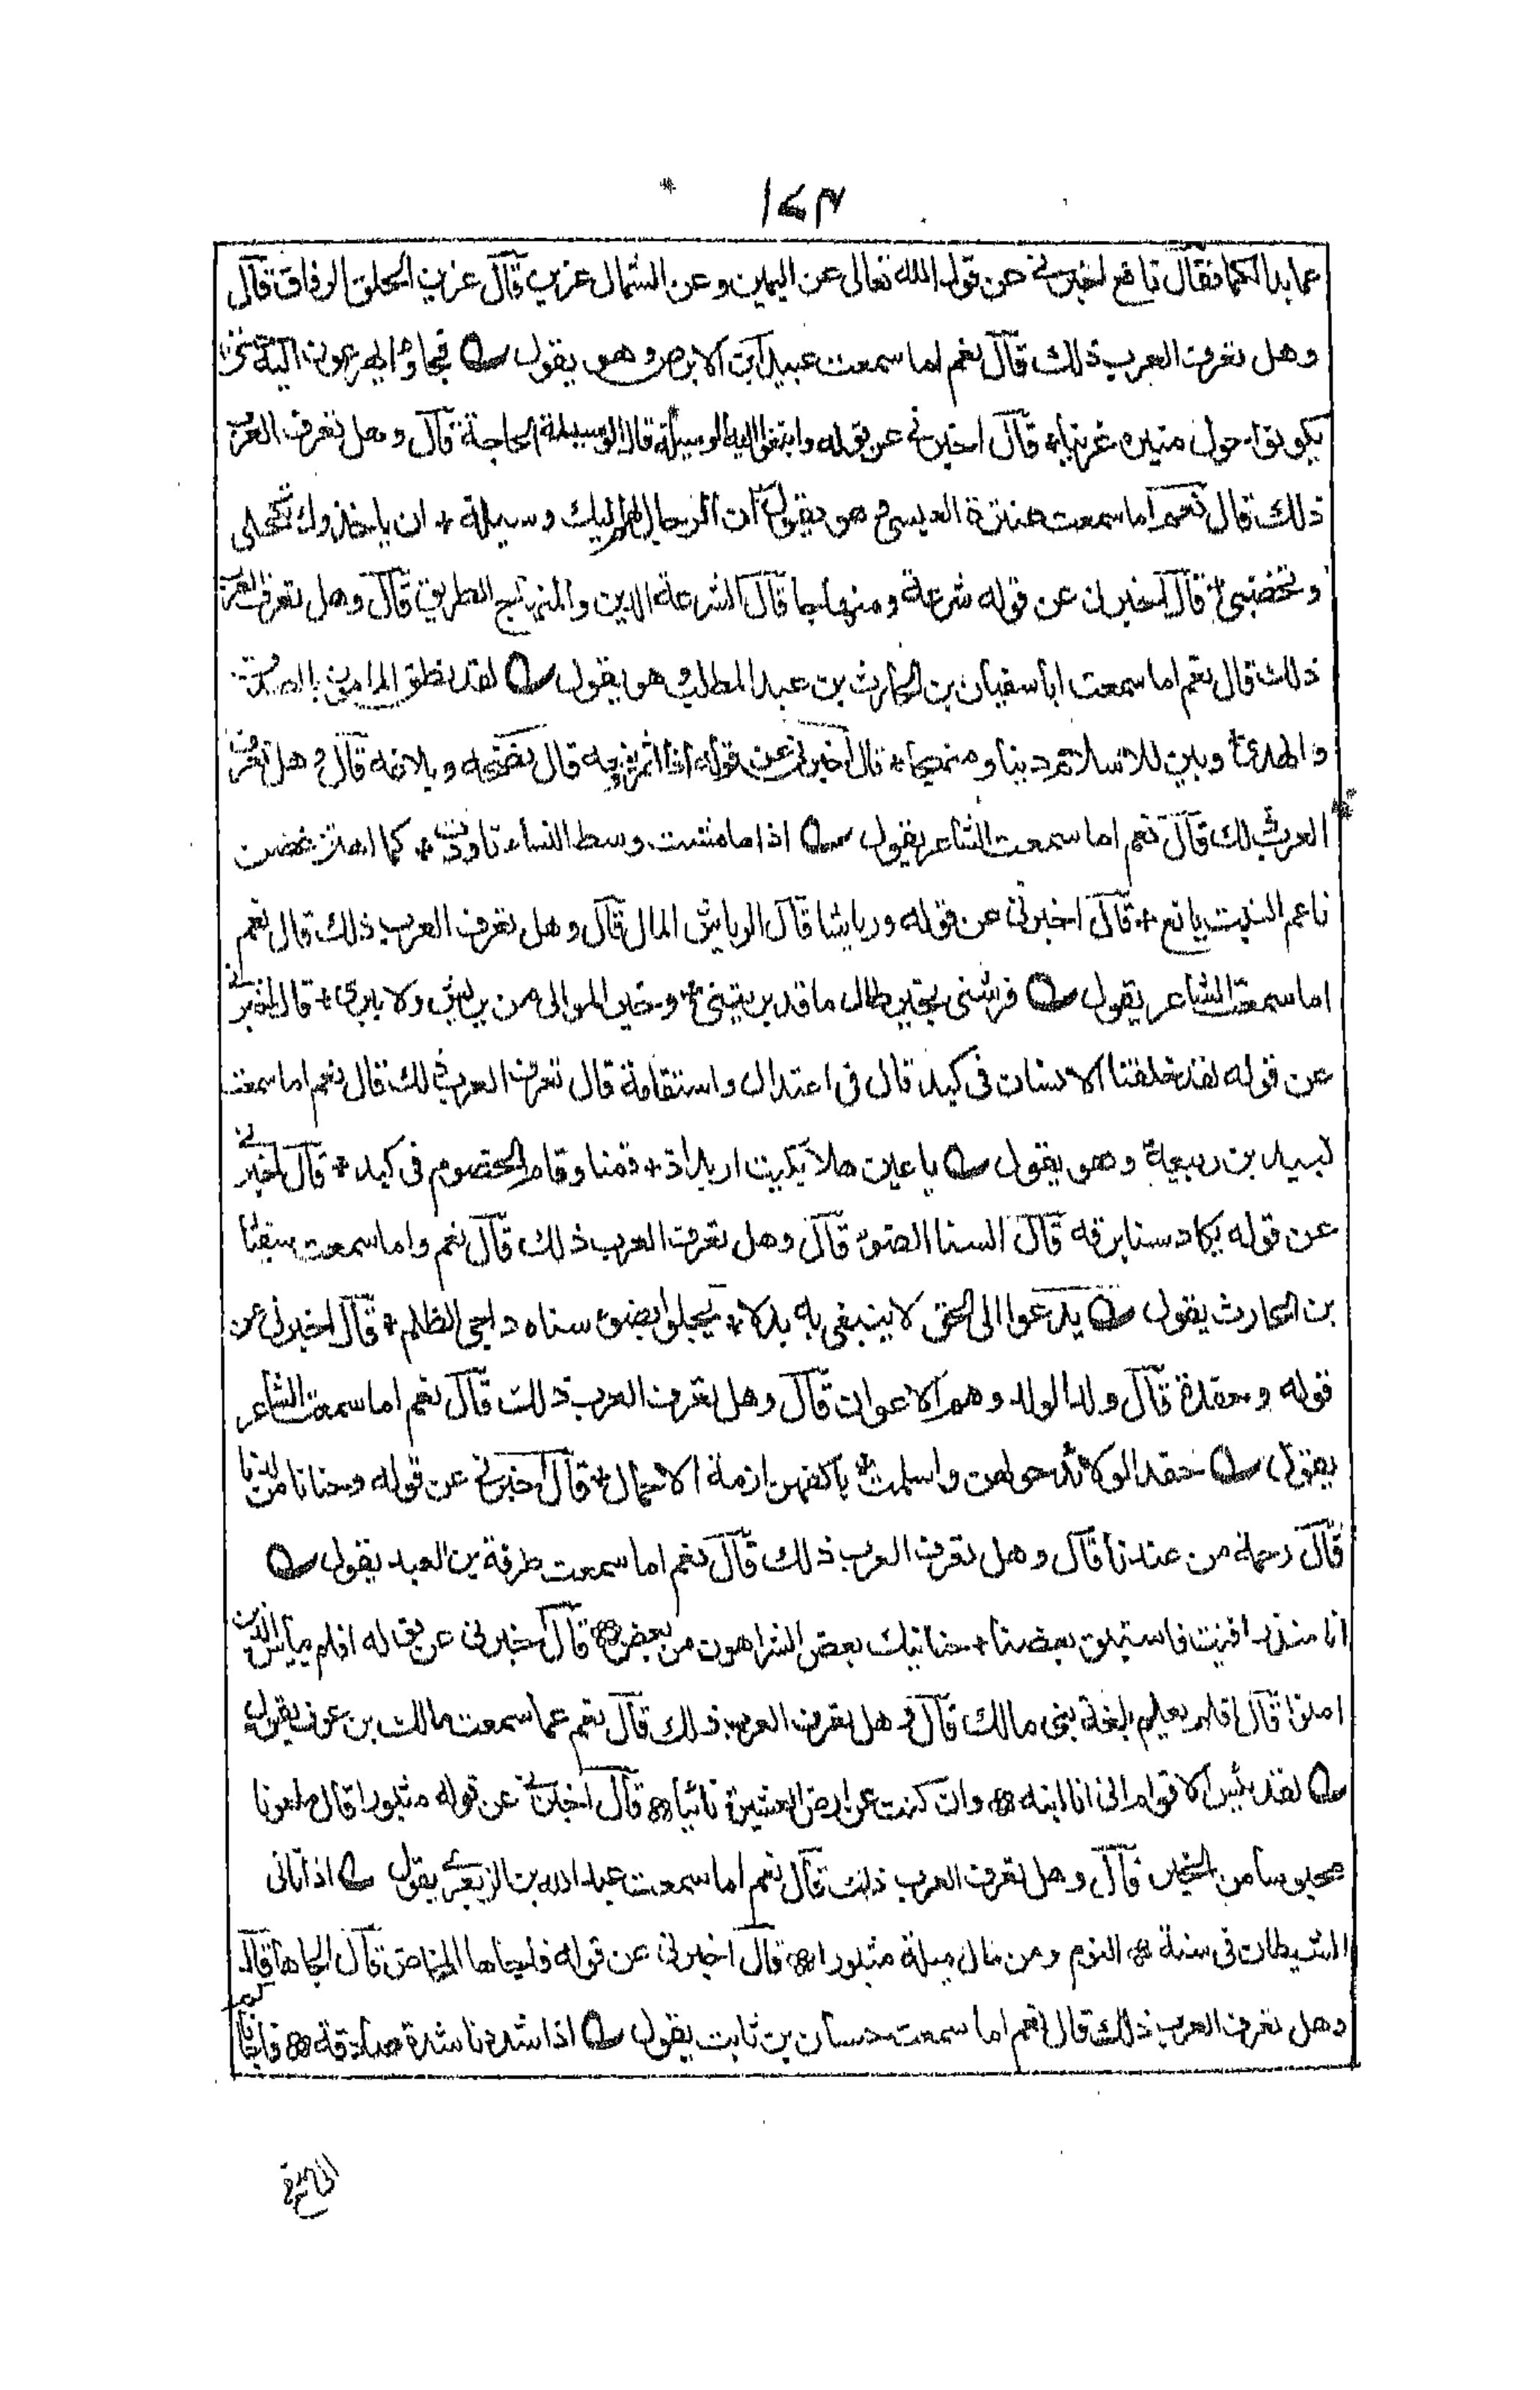 ١٤٣
عما بدا لكما فقال نافع اخبرنى عن قول الله تعالى عن اليمين وعن الشمال عزين قال عزين الحلق الرفاق قال
وهل تعرف العرب ذلك قال نعم اما سمعت عبيد ابن الابرص وهو يقول فجاؤا يهرعون اليه حتى
يكونوا حول منبره عزينا قال اخبرنى عن قوله وابتغوا اليه الوسيلة قال الوسيلة الحاجة قال وهل تعرف العرب
ذلك قال نعم اما سمعت عنترة العبسى وهو يقول ان الرجال لهم اليك وسيلة + ان ياخذوك تكحلى
وتخضبى + قال اخبرنى عن قوله شرعة ومنهاجا قال الشرعة الدين والمنهاج الطريق قال وهل تعرف العرب
ذلك قال نعم اما سمعت ابا سفيان بن الحارث بن عبد المطلب وهو يقول لقد نطق المامون بالصدق
والهدى + وبين للاسلام دينا ومنهجا + قال اخبرنى عن قوله اذا اثمر وينعه قال نضجه وبلاغه قال وهل تعرف
العرب ذلك قال نعم اما سمعت الشاعر يقول اذا ما مشت وسط النساء تاودت + كما اهتز غصن
ناعم النبت يانع + قال اخبرنى عن قوله ورياشا قال الرياش المال قال وهل تعرف العرب ذلك قال نعم
اما سمعت الشاعر يقول فرشنى بخير طال ما قد بريتنى + وخير الموالى من يريش ولا يبرى + قال اخبرنى
عن قوله لقد خلقنا الانسان فى كبد قال فى اعتدال واستقامة قال تعرف العرب ذلك قال نعم اما سمعت
لبيد بن ربيعة وهو يقول يا عين هلا بكيت اربد اذ + قمنا وقام الخصوم فى كبد + قال اخبرنى
عن قوله يكاد سنا برقه قال السنا الضوء قال وهل تعرف العرب ذلك قال نعم واما سمعت سفيان
بن الحارث يقول يدعوا الى الحق لا يبغى به بدلا + يجلوا بضوء سناه داجى الظلم + قال اخبرنى عن
قوله وحفدة قال ولد الولد وهم الاعوان قال وهل تعرف العرب ذلك قال نعم اما سمعت الشاعر
يقول حفد الولائد حولهن واسلمت + باكفهن ازمة الاجمال + قال اخبرنى عن قوله وحنانا من لدنا
قال رحمة من عندنا قال وهل تعرف العرب ذلك قال نعم اما سمعت طرفة بن العبد يقول
ابا منذر افنيت فاستبق بعضنا + حنانيك بعض الشر اهون من بعض قال اخبرنى عن قوله افلم ييأس الذين
امنوا قال افلم يعلم بلغة بنى مالك قال وهل تعرف العرب ذلك قال نعم عما سمعت مالك بن عوف يقول
لقد يئس الاقوام انى انا ابنه وان كنت عن ارض العشيرة نائيا قال اخبرنى عن قوله مثبورا قال ملعونا
محبوسا من الخير قال وهل تعرف العرب ذلك قال نعم اما سمعت عبد الله بن الزبعرى يقول اذ اتانى
الشيطان فى سنة النوم ومن مال ميله مثبورا قال اخبرنى عن قوله فاجاءها المخاض قال الجاها قال
وهل تعرف العرب ذلك قال نعم اما سمعت حسان بن ثابت يقول اذ شددنا شدة صادقة فاجاناكم